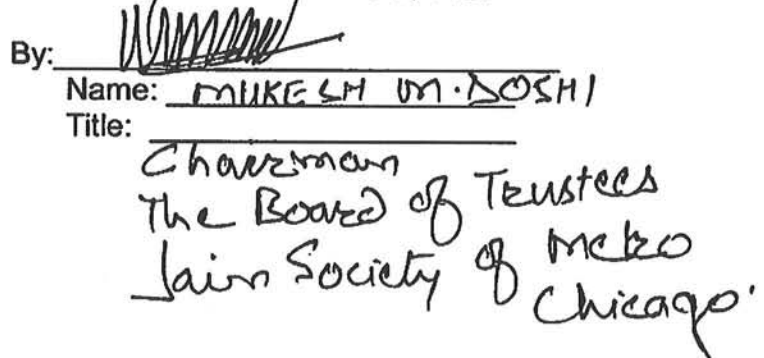 By:
Name: MUKESH M. DOSHI
Title:
Chairman
The Board of Trustees
Jain Society of Metro
Chicago.